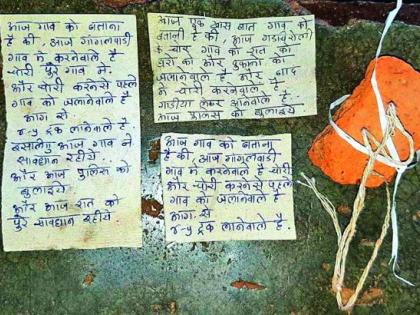 आज गाव को बताना
है की, आज गांगलवाडी
गाव मे करनेवाले है
चोरी पुरे गाव मे.
और चोरी करनेसे पहले
गाव को जलानेवाले है
आग से
४-५ ट्रक लानेवाले है
इसलीए आज गाव ने
सावधान रहीये
और आज पुलिस को
बुलाइये
और आज रात को
पुरे सावधान रहीये.
आज एक खास बात गाव को
बतानी है की आज
के चार गाव को रात को
घरो को और दुकानो को
जलानेवाले है और बाद
मे चोरी करनेवाले है
गाडीया लेकर आनेवाले है
आज पुलिस को बुलाइये
आज गाव को बताना
है की, आज गांगलवाडी
गाव मे करनेवाले है चोरी
और चोरी करनेसे पहले
गाव को जलानेवाले है
आग. से
४-५ ट्रक लानेवाले है.